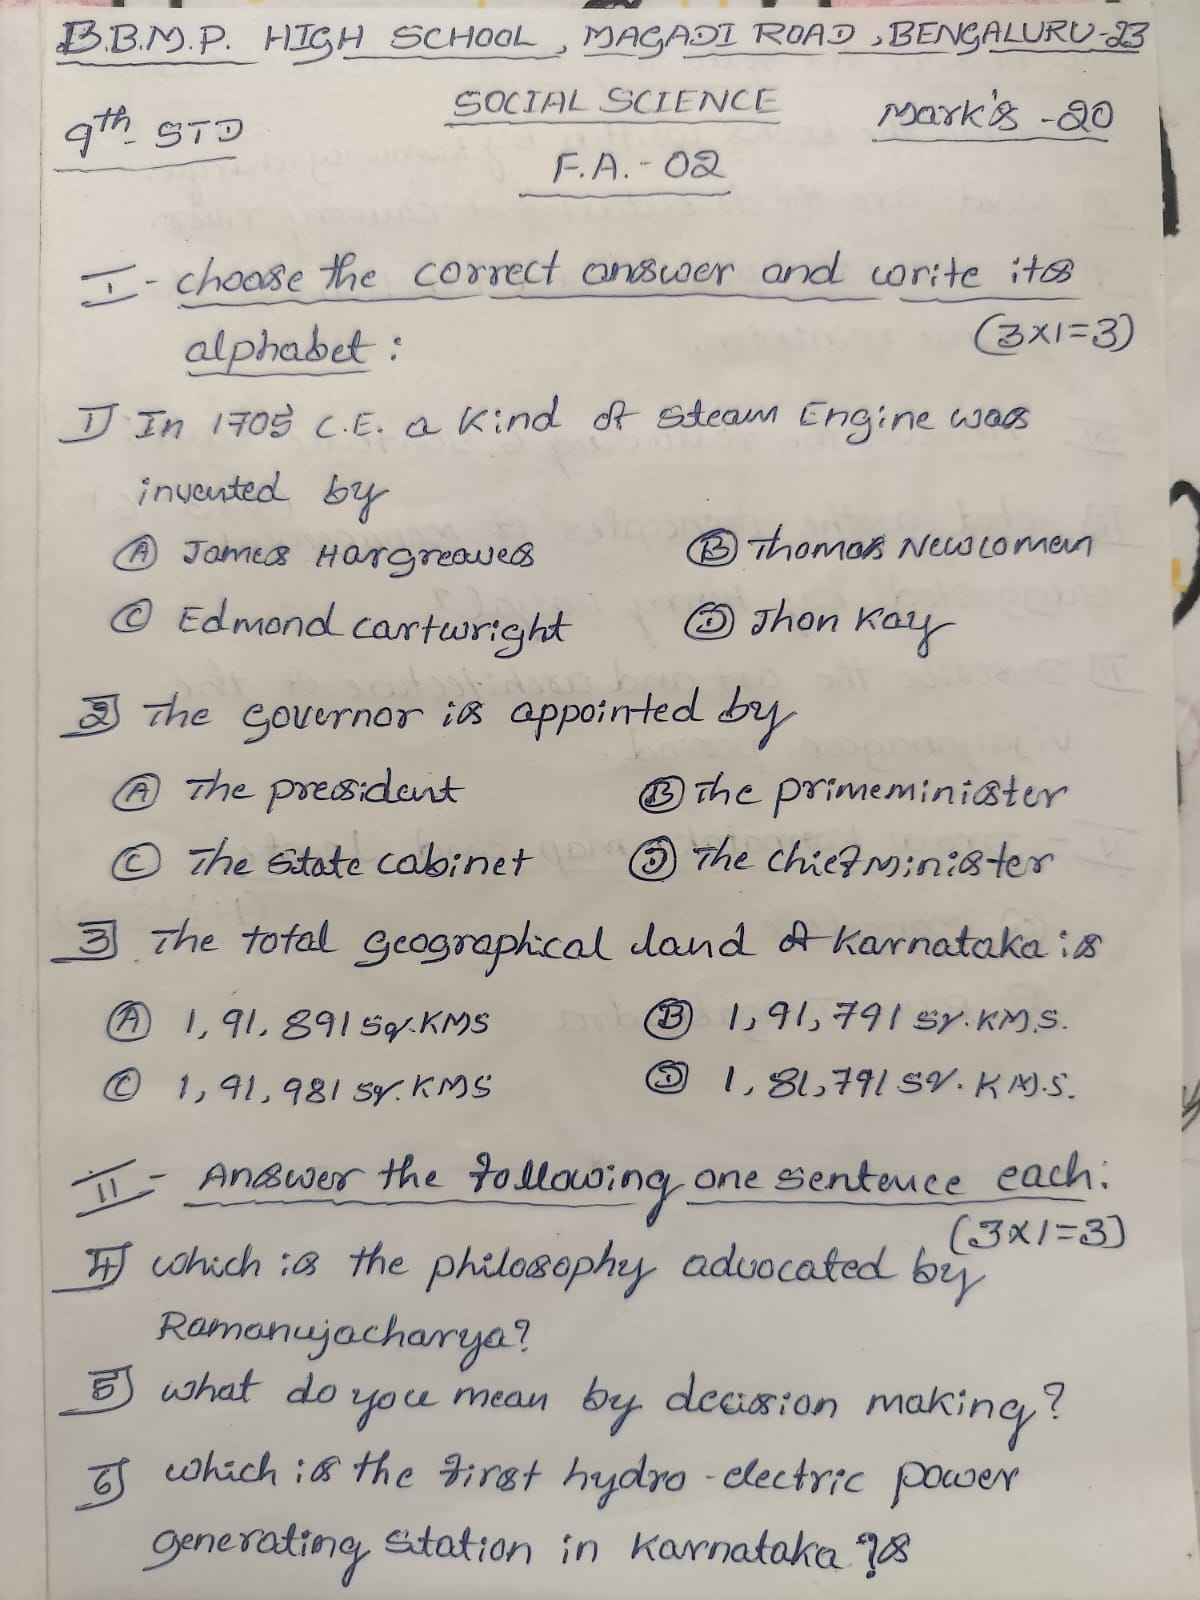 B.B.M.P. HIGH SCHOOL, MAGADI ROAD, BENGALURU-23
9th STD SOCIAL SCIENCE Mark's - 20
F.A.- 02
I - choose the correct answer and write its
alphabet : (3x1=3)
1] In 1705 C.E. a Kind of Steam Engine was
invented by
(A) James Hargreaves (B) Thomas Newcomen
(C) Edmond cartwright (D) Jhon Kay
2] The governor is appointed by
(A) The president (B) The primeminister
(C) The State cabinet (D) The Chief Minister
3] The total geographical land of Karnataka is
(A) 1,91,891 Sq.KMS (B) 1,91,791 Sq.KM.S.
(C) 1,91,981 Sq.KMS (D) 1,81,791 Sq.KM.S.
II - Answer the following one sentence each:
(3x1=3)
4] which is the philosophy advocated by
Ramanujacharya?
5] what do you mean by decision making?
6] which is the first hydro-electric power
generating Station in Karnataka